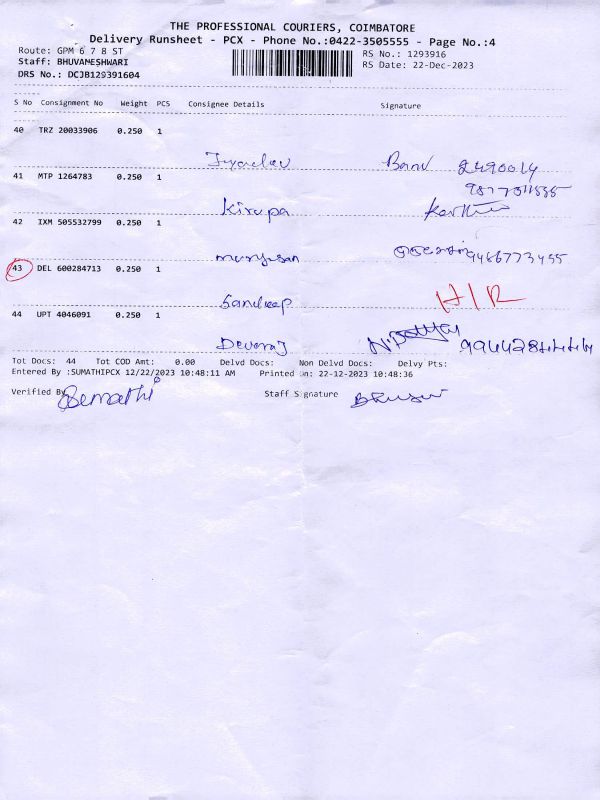 THE PROFESSIONAL COURIERS, COIMBATORE
Delivery Runsheet - PCX - Phone No.:0422-3505555 - Page No.:4
Route: GPM 6 7 8 ST
RS No.: 1293916
Staff: BHUVANESHWARI
RS Date: 22-Dec-2023
DRS No.: DCJB129391604
S No Consignment No Weight PCS Consignee Details Signature
40 TRZ 20033906 0.250 1
41 MTP 1264783 0.250 1
Kirupa
42 IXM 505532799 0.250 1
Murugesan 9486773455
43 DEL 600284713 0.250 1
Sandeep
44 UPT 4046091 0.250 1
Devaraj
Tot Docs: 44 Tot COD Amt: 0.00 Delvd Docs: Non Delvd Docs: Delvy Pts:
Entered By :SUMATHIPCX 12/22/2023 10:48:11 AM Printed On: 22-12-2023 10:48:36
Verified By Staff Signature